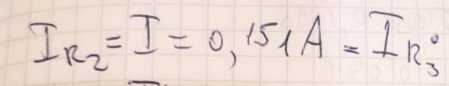 I_R₂ = I = 0,151 A = I_R₃°